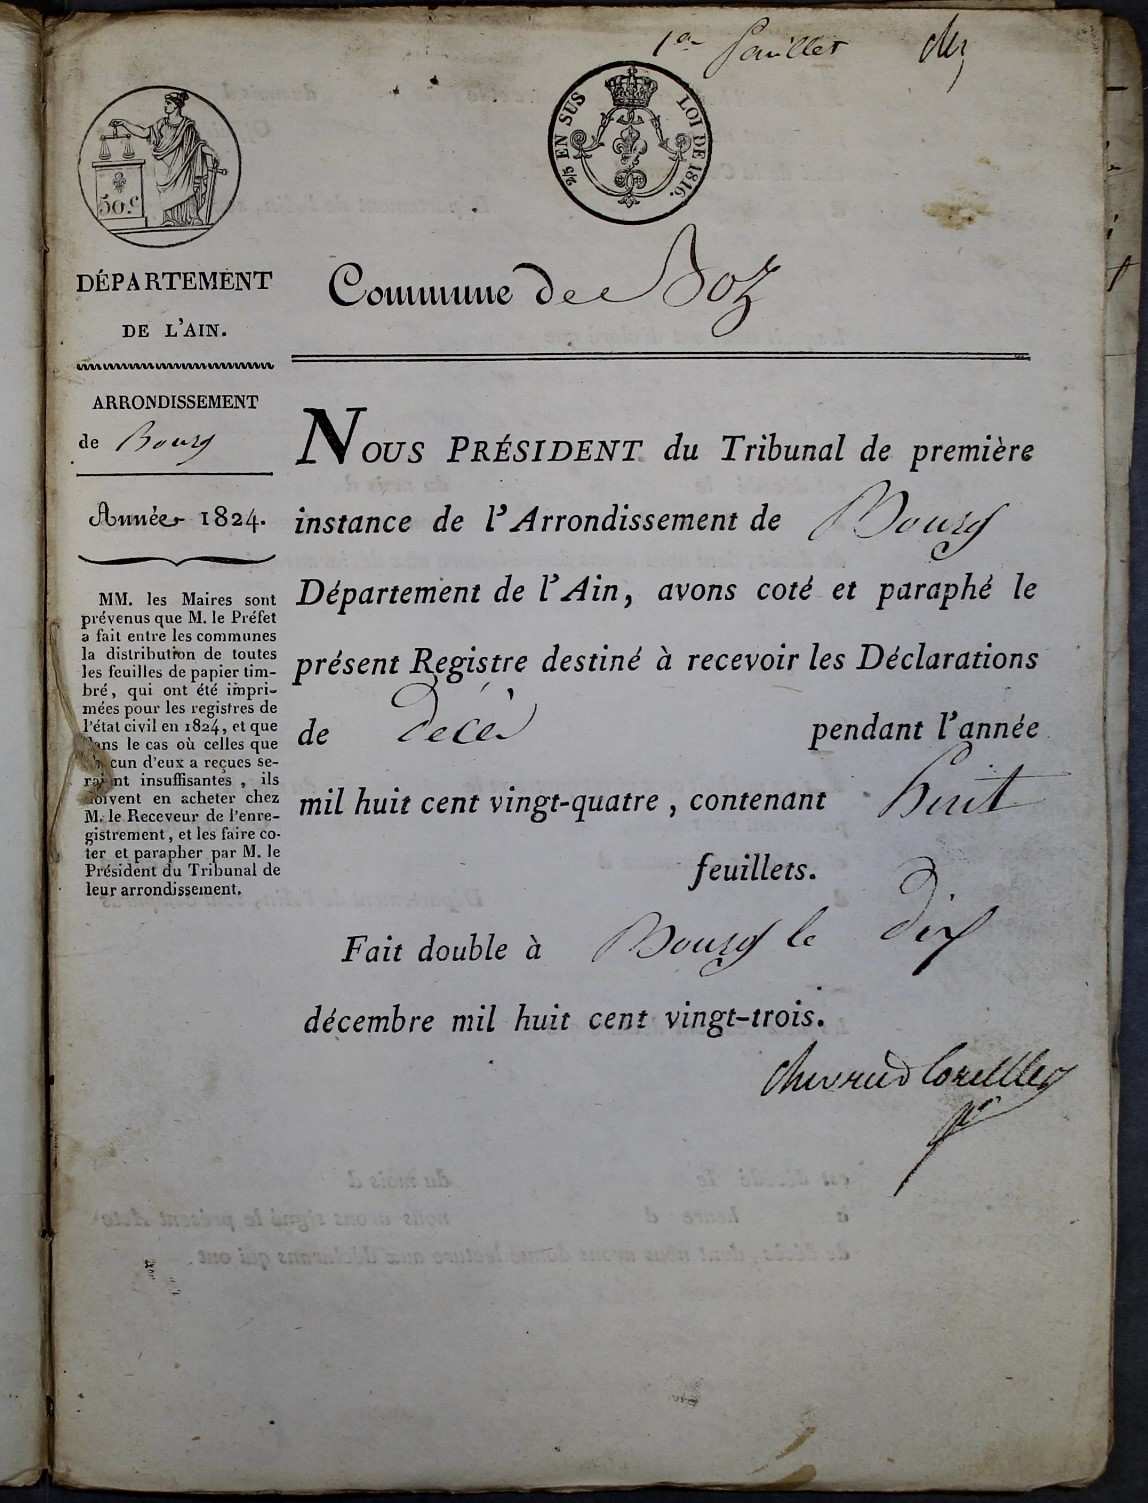 1er feuillet
2/5 EN SUS LOI DE 1816.
50.c
DÉPARTEMENT
DE L'AIN.
ARRONDISSEMENT
de Bourg
Année 1824.
MM. les Maires sont
prévenus que M. le Préfet
a fait entre les communes
la distribution de toutes
les feuilles de papier tim-
bré, qui ont été impri-
mées pour les registres de
l'état civil en 1824, et que
dans le cas où celles que
chacun d'eux a reçues se-
raient insuffisantes, ils
doivent en acheter chez
M. le Receveur de l'enre-
gistrement, et les faire co-
ter et parapher par M. le
Président du Tribunal de
leur arrondissement.
Commune de Boz
NOUS PRÉSIDENT du Tribunal de première
instance de l'Arrondissement de Bourg
Département de l'Ain, avons coté et paraphé le
présent Registre destiné à recevoir les Déclarations
de décès pendant l'année
mil huit cent vingt-quatre, contenant huit
feuillets.
Fait double à Bourg le dix
décembre mil huit cent vingt-trois.